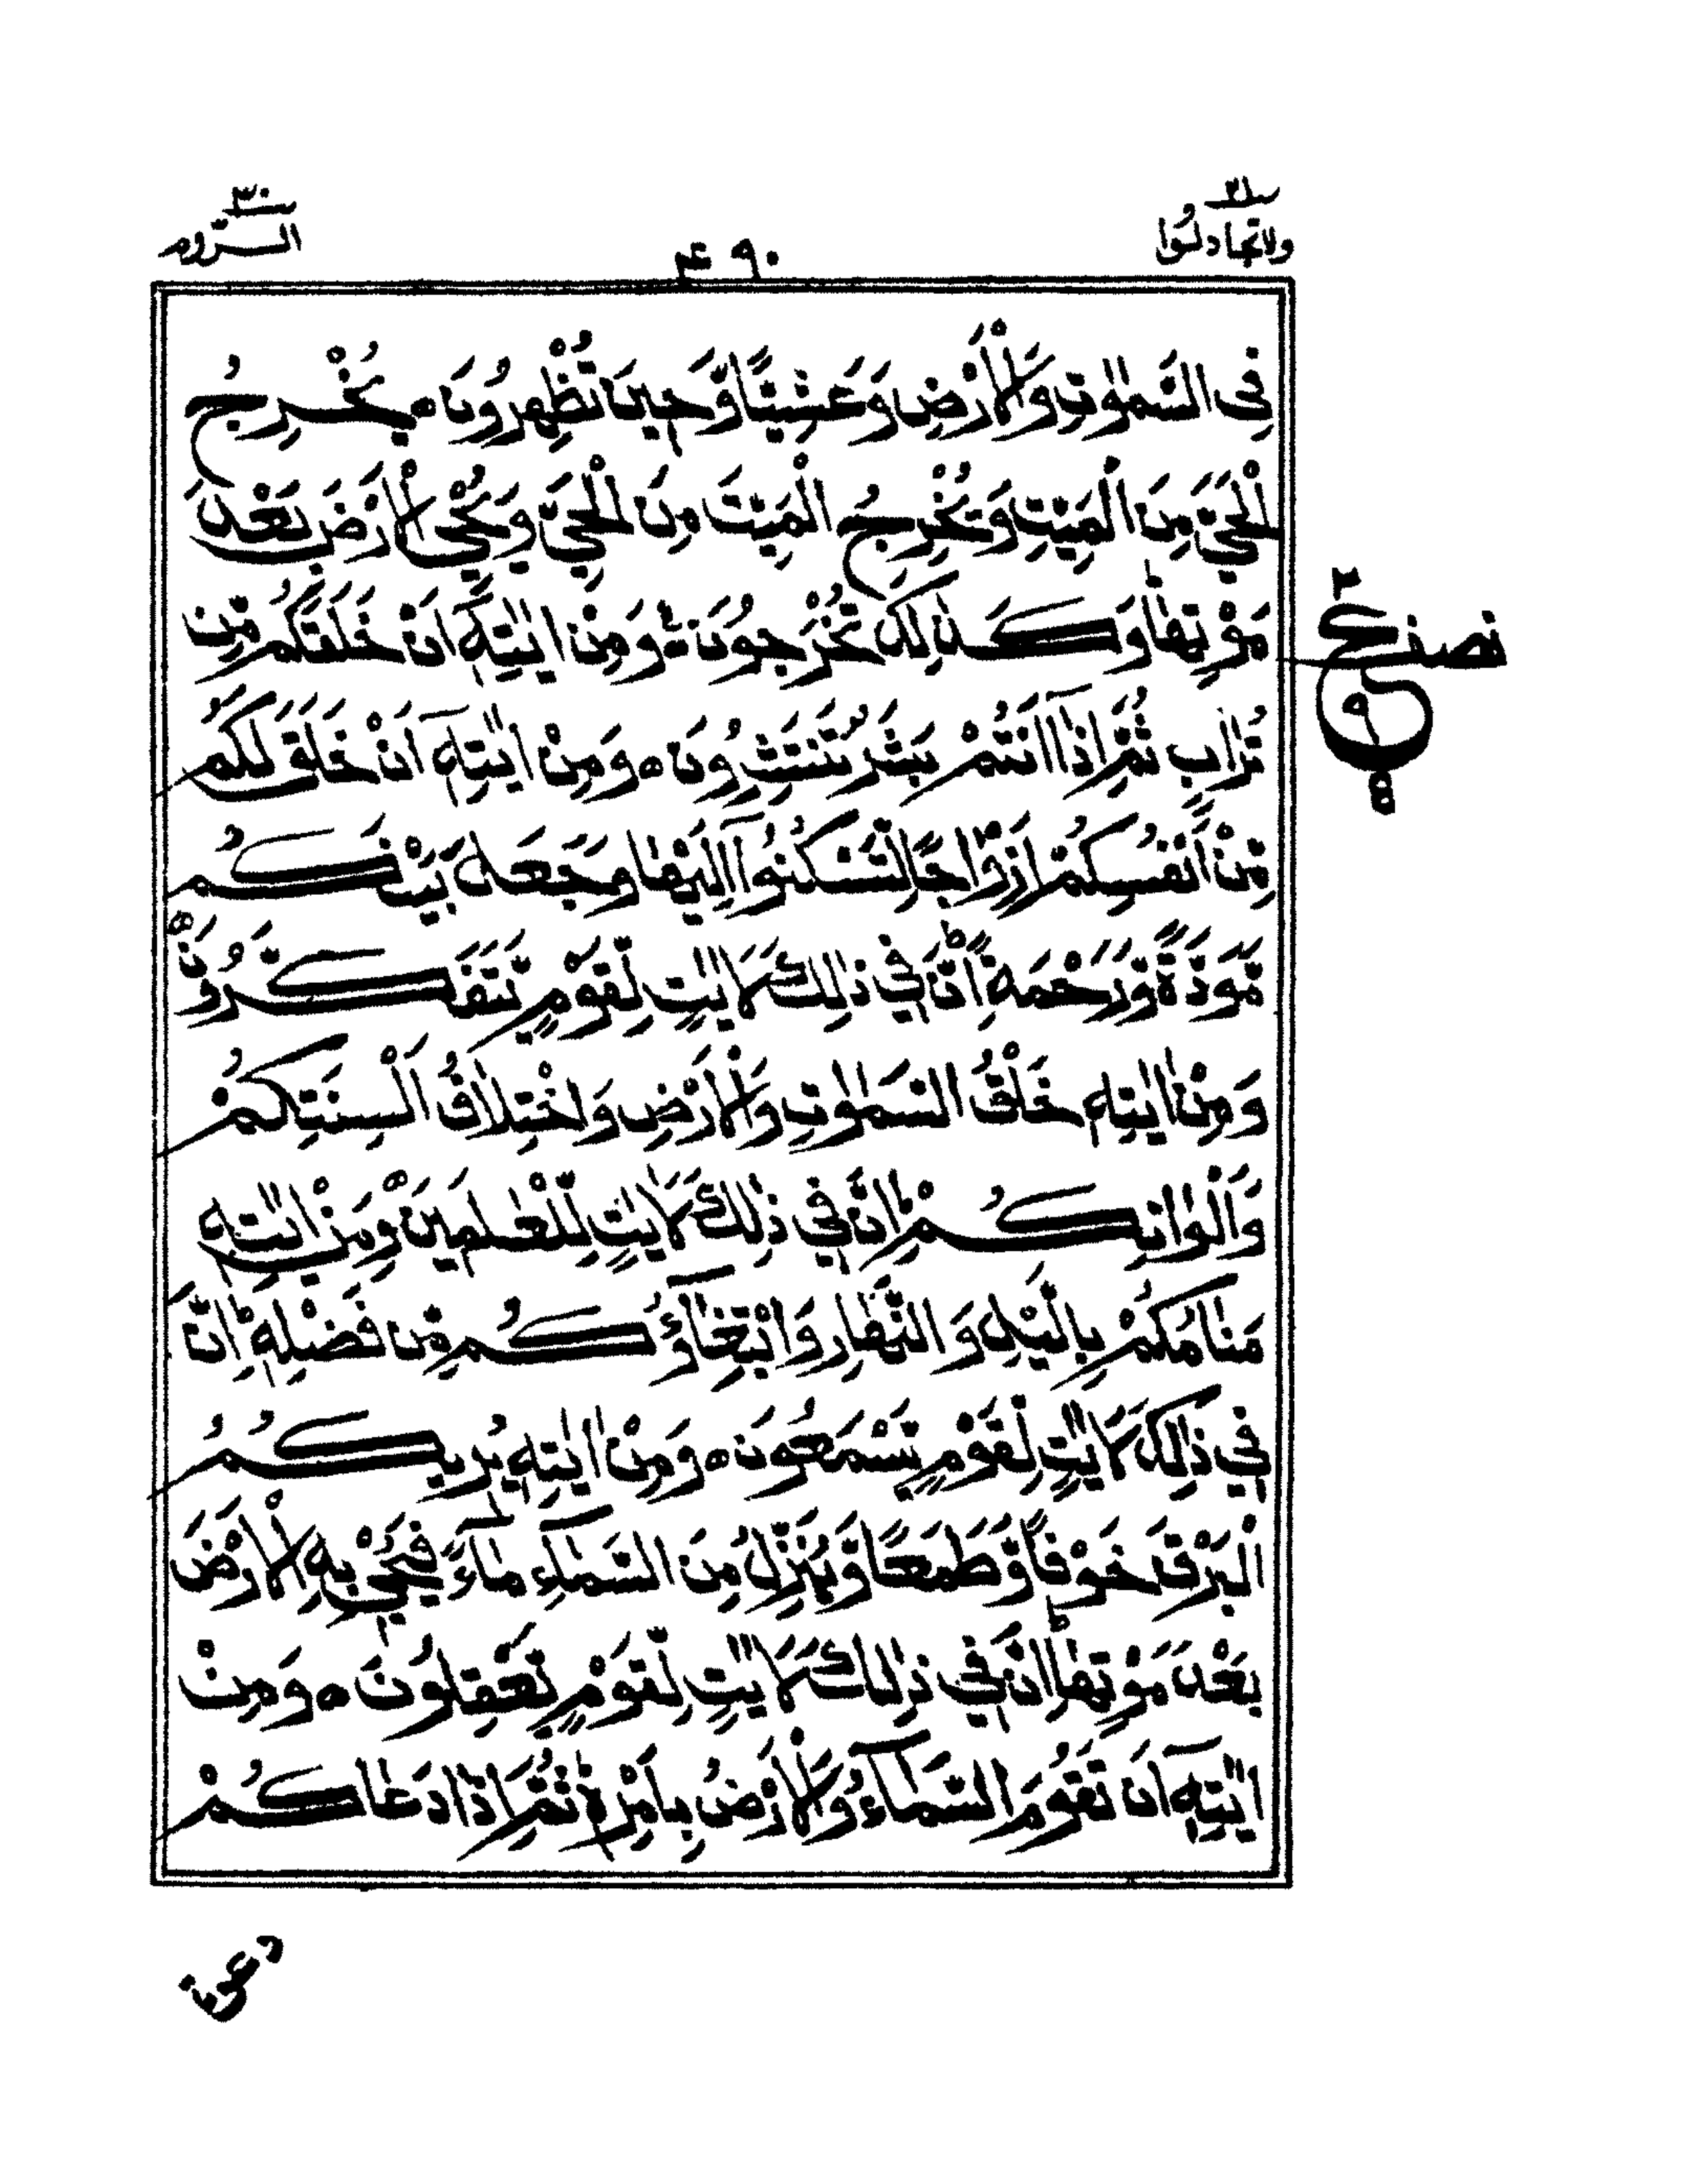 ولاتجادلوا ۲۱
۴۹۰
الروم ۳۰
فِى السَّمٰوٰتِ وَالْاَرْضِ وَعَشِيًّا وَّحِيْنَ تُظْهِرُوْنَ ۝ يُخْرِجُ
الْحَيَّ مِنَ الْمَيِّتِ وَيُخْرِجُ الْمَيِّتَ مِنَ الْحَيِّ وَيُحْيِ الْاَرْضَ بَعْدَ
مَوْتِهَا ؕ وَكَذٰلِكَ تُخْرَجُوْنَ ۝ وَمِنْ اٰيٰتِهٖٓ اَنْ خَلَقَكُمْ مِّنْ
نصف ع
تُرَابٍ ثُمَّ اِذَآ اَنْتُمْ بَشَرٌ تَنْتَشِرُوْنَ ۝ وَمِنْ اٰيٰتِهٖٓ اَنْ خَلَقَ لَكُمْ
مِّنْ اَنْفُسِكُمْ اَزْوَاجًا لِّتَسْكُنُوْٓا اِلَيْهَا وَجَعَلَ بَيْنَكُمْ
مَّوَدَّةً وَّرَحْمَةً ؕ اِنَّ فِيْ ذٰلِكَ لَاٰيٰتٍ لِّقَوْمٍ يَّتَفَكَّرُوْنَ ۝
وَمِنْ اٰيٰتِهٖ خَلْقُ السَّمٰوٰتِ وَالْاَرْضِ وَاخْتِلَافُ اَلْسِنَتِكُمْ
وَاَلْوَانِكُمْ ؕ اِنَّ فِيْ ذٰلِكَ لَاٰيٰتٍ لِّلْعٰلِمِيْنَ ۝ وَمِنْ اٰيٰتِهٖ
مَنَامُكُمْ بِالَّيْلِ وَالنَّهَارِ وَابْتِغَآؤُكُمْ مِّنْ فَضْلِهٖ ؕ اِنَّ
فِيْ ذٰلِكَ لَاٰيٰتٍ لِّقَوْمٍ يَّسْمَعُوْنَ ۝ وَمِنْ اٰيٰتِهٖ يُرِيْكُمُ
الْبَرْقَ خَوْفًا وَّطَمَعًا وَّيُنَزِّلُ مِنَ السَّمَآءِ مَآءً فَيُحْيٖ بِهِ الْاَرْضَ
بَعْدَ مَوْتِهَا ؕ اِنَّ فِيْ ذٰلِكَ لَاٰيٰتٍ لِّقَوْمٍ يَّعْقِلُوْنَ ۝ وَمِنْ
اٰيٰتِهٖٓ اَنْ تَقُوْمَ السَّمَآءُ وَالْاَرْضُ بِاَمْرِهٖ ؕ ثُمَّ اِذَا دَعَاكُمْ
دعوة